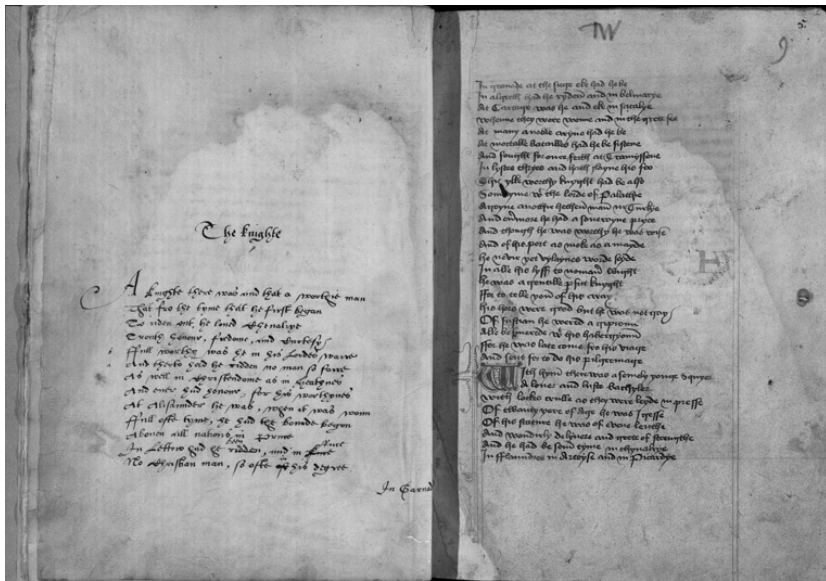 The knighte
A knighte there was and that a worthie man
That fro the tyme that he first began
To riden out, he loved Chevalrye
Trouth honour, fredome, and Curtesy
Ffull worthy was he in his Lordes warre
And therto had he ridden no man so farre
As well in Christendome as in Heathnes
And ever had honour, for his worthynes
At Alisaunder he was, when it was wonn
Ffull ofte tyme, he had the borde begon
Aboven all nations in Pruce
In Lettow had he ridden, and in Ruce
No Christian man, so ofte of his degree
In Garnad
TW
5
9
In granade at the sege eke had he be
In algezir had he ryden and in belmarye
At was he and eke in
Whenne they were wonne and in the grete see
At many a noble had he be
At mortalle batailles had he be fiftene
And fought for oure feith at
In lystes thryes and hath slayne his foo
This ylke worthy knyght had be also
Somtyme with the lorde of Palathie
Ageyne anothir hethen man in Turkye
And evermore he had a sovereyne
And though he was worthy he was wise
And of his port as meke as a mayde
he nevir yet vylaynes worde seyde
In alle his lyff to noman wight
he was a gentille knyght
ffor to telle you of his
his hors were good but he was not gay
Of fustian he wered a gipoun
Alle with his habergyoun
ffor he was late come fro his viage
And for to do his pilgremage
H
With hym there was a yonge Squyer
A lover and lusty Bachyler
With lockes crulle as they were leyde in presse
Of twenty yere of Age he was I gesse
Of his stature he was of evene lengthe
And wondirly delyvere and grete of strengthe
And he had be somtyme in chyvalrye
In fflaundres in Artoyse and in Picardye